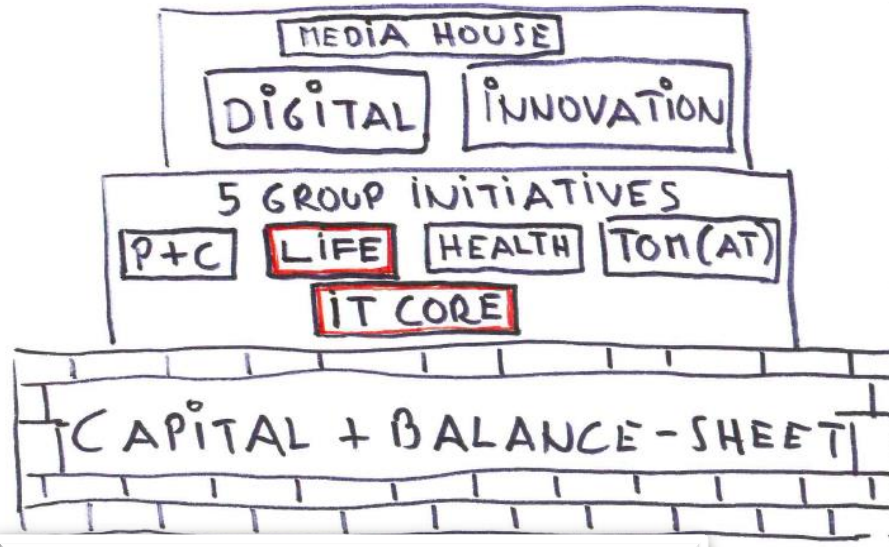 MEDIA HOUSE
DIGITAL INNOVATION
5 GROUP INITIATIVES
P+C LIFE HEALTH TOM(AT)
IT CORE
CAPITAL + BALANCE-SHEET